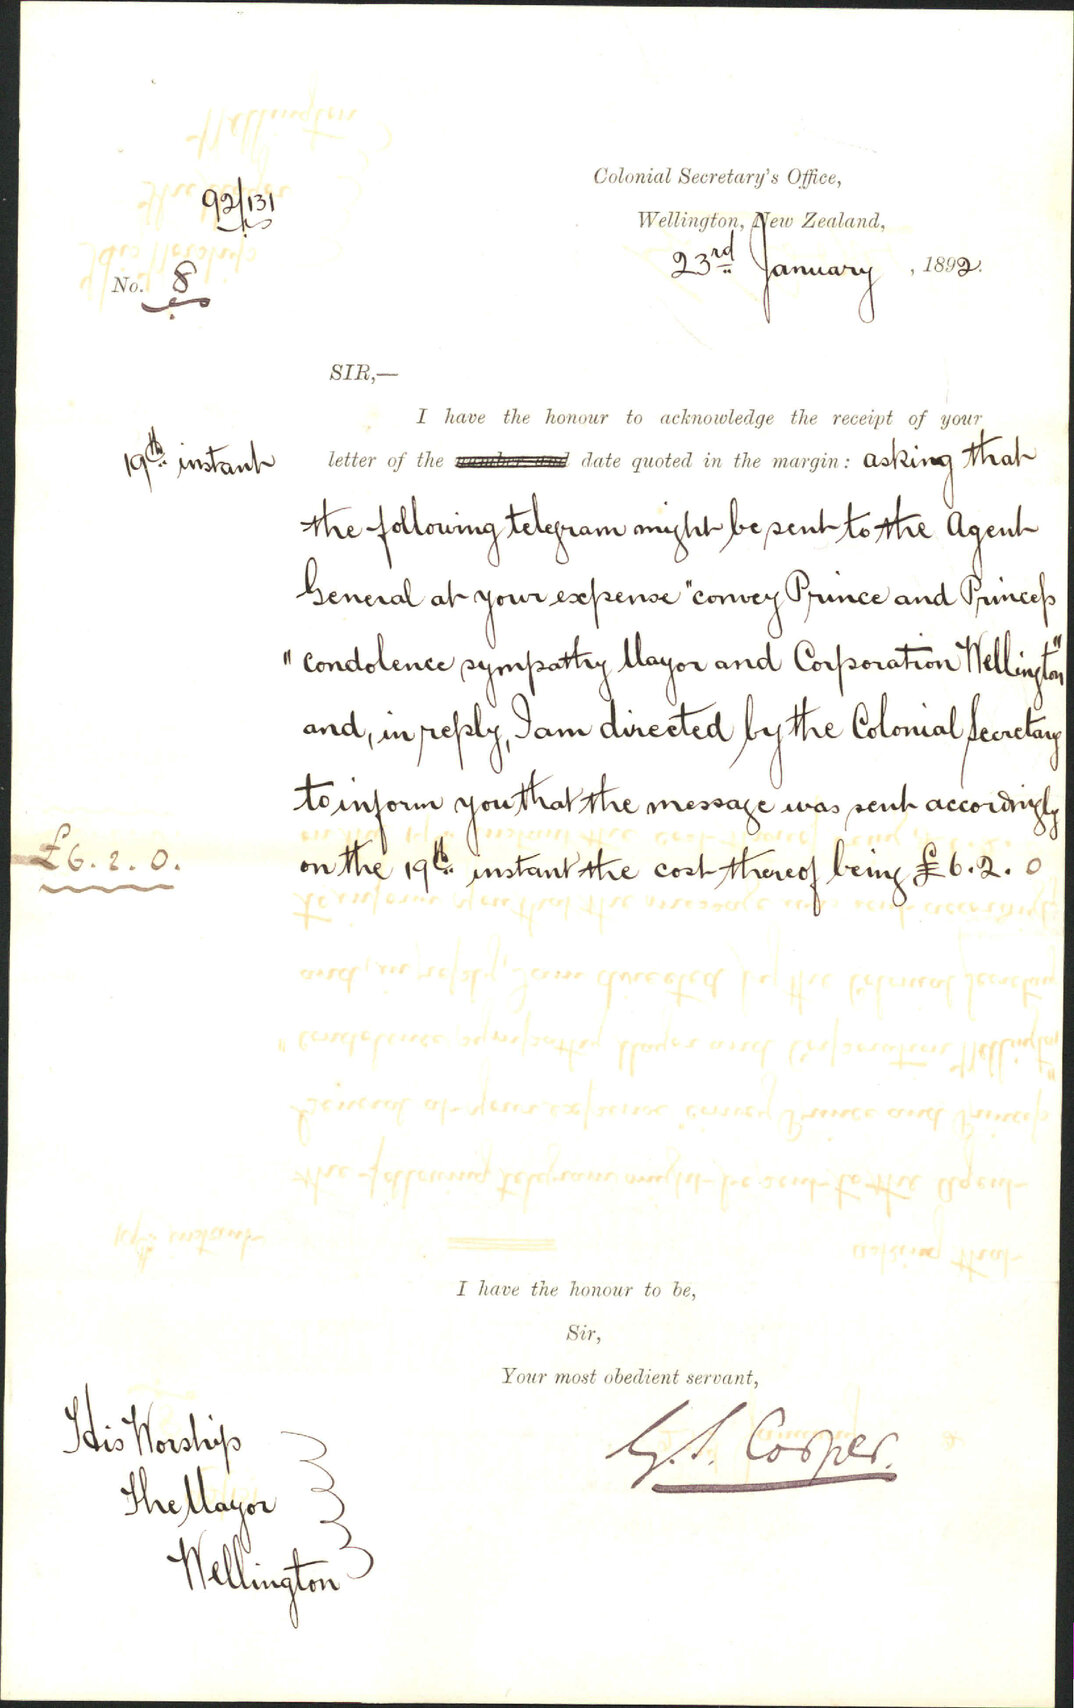 Colonial Secretary's Office,
Wellington, New Zealand,
92/131
23rd January, 1892.
No. 8
SIR,—
I have the honour to acknowledge the receipt of your
19th instant
letter of the number and date quoted in the margin: asking that
the following telegram might be sent to the Agent
General at your expense "convey Prince and Princess
"condolence sympathy Mayor and Corporation Wellington"
and, in reply, I am directed by the Colonial Secretary
to inform you that the message was sent accordingly
£6.2.0.
on the 19th instant the cost thereof being £6.2.0
I have the honour to be,
Sir,
Your most obedient servant,
G. S. Cooper.
His Worship
The Mayor
Wellington